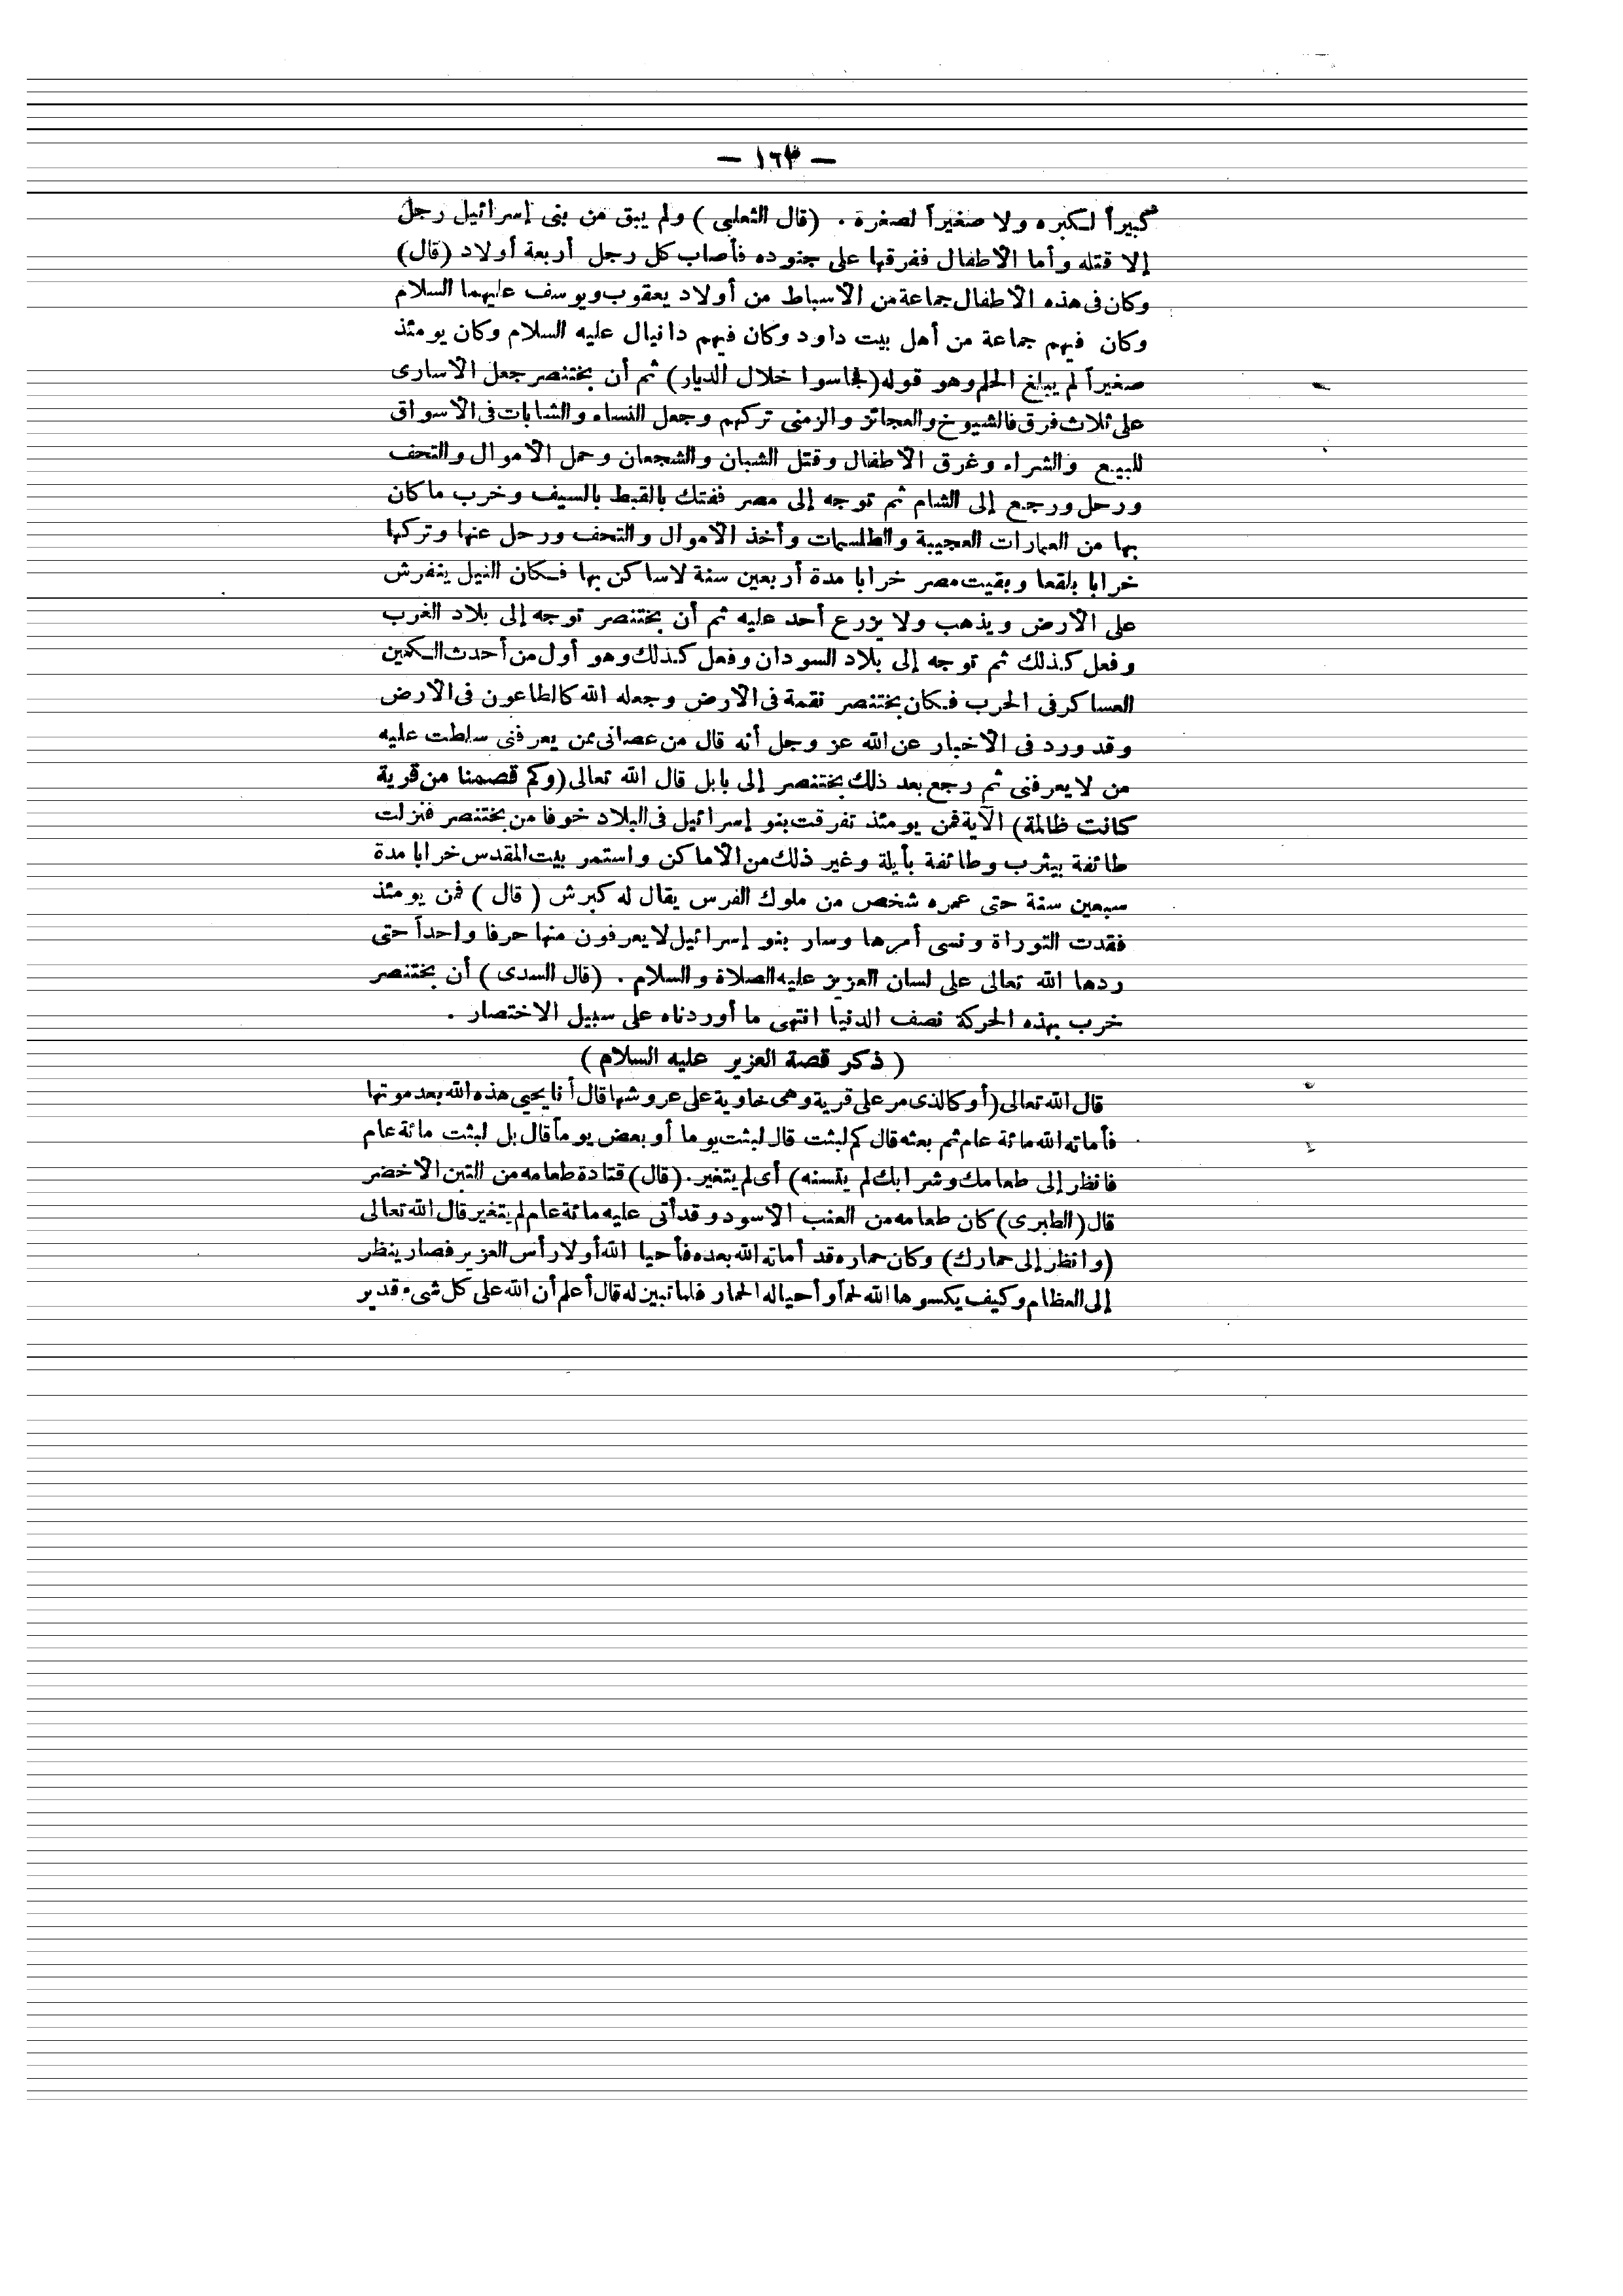 — ١٦٣ —
كبيراً لكبره ولا صغيراً لصغرة . (قال الثعلبى ) ولم يبق من بنى إسرائيل رجل
إلا قتله وأما الاطفال ففرقها على جنوده فأصاب كل رجل أربعة أولاد (قال)
وكان فى هذه الاطفال جماعة من الاسباط من أولاد يعقوب ويوسف عليهما السلام
وكان فيهم جماعة من أهل بيت داود وكان فيهم دانيال عليه السلام وكان يومئذ
صغيراً لم يبلغ الحلم وهو قوله (فجاسوا خلال الديار) ثم أن بختنصر جعل الاسارى
على ثلاث فرق فالشيوخ والعجائز والزمنى تركهم وجعل النساء والشابات فى الاسواق
للبيع والشراء وغرق الاطفال وقتل الشبان والشجعان وحمل الاموال والتحف
ورحل ورجع إلى الشام ثم توجه إلى مصر ففتك بالقبط بالسيف وخرب ما كان
بها من العمارات العجيبة والطلسمات وأخذ الاموال والتحف ورحل عنها وتركها
خرابا بلقعا وبقيت مصر خرابا مدة أربعين سنة لاساكن بها فكان النيل ينفرش
على الارض ويذهب ولا يزرع أحد عليه ثم أن بختنصر توجه إلى بلاد الغرب
وفعل كذلك ثم توجه إلى بلاد السودان وفعل كذلك وهو أول من أحدث الكمين
العساكر فى الحرب فكان بختنصر نقمة فى الارض وجعله الله كالطاعون فى الارض
وقد ورد فى الاخبار عن الله عز وجل أنه قال من عصانى ممن يعرفنى سلطت عليه
من لايعرفنى ثم رجع بعد ذلك بختنصر إلى بابل قال الله تعالى (وكم قصمنا من قرية
كانت ظالمة) الآية فمن يومئذ تفرقت بنو إسرائيل فى البلاد خوفا من بختنصر فنزلت
طائفة بيثرب وطائفة بأيلة وغير ذلك من الاماكن واستمر بيت المقدس خرابا مدة
سبعين سنة حتى عمره شخص من ملوك الفرس يقال له كبرش ( قال ) فمن يومئذ
فقدت التوراة ونسى أمرها وسار بنو إسرائيل لايعرفون منها حرفا واحداً حتى
ردها الله تعالى على لسان العزيز عليه الصلاة والسلام . (قال السدى ) أن بختنصر
خرب بهذه الحركة نصف الدنيا انتهى ما أوردناه على سبيل الاختصار .
( ذكر قصة العزير عليه السلام )
قال الله تعالى (أو كالذى مر على قرية وهى خاوية على عروشها قال أنا يحيى هذه الله بعد موتها
فأماته الله مائة عام ثم بعثه قال كم لبثت قال لبثت يوما أو بعض يوماً قال بل لبثت مائة عام
فانظر إلى طعامك وشرابك لم يتسنه ) أى لم يتغير . (قال) قتادة طعامه من التين الاخضر
قال (الطبرى) كان طعامه من العنب الاسود وقد أتى عليه مائة عام لم يتغير قال الله تعالى
(وانظر إلى حمارك) وكان حماره قد أماته الله بعده فأحيا الله أولا رأس العزير فصار ينظر
إلى العظام وكيف يكسوها الله لحماً وأحيا له الحمار فلما تبين له قال أعلم أن الله على كل شىء قدير